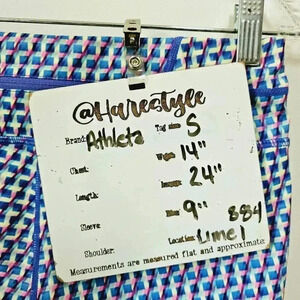 @Harestyle
Brand: Athleta Tag size: S
Waist: 14"
Chest: Inseam: 24"
Length: Rise: 9" 884
Sleeve
Shoulder: Location: Lime 1
Measurements are measured flat and approximate